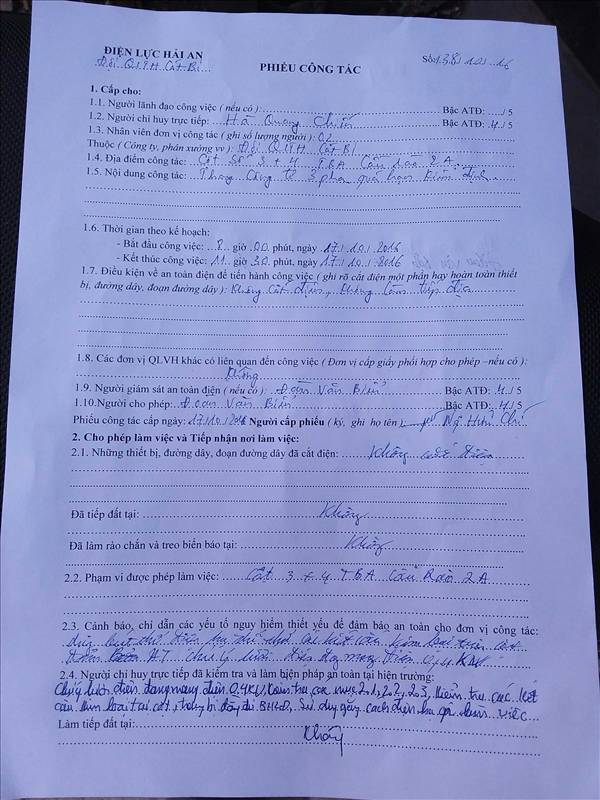 ĐIỆN LỰC HẢI AN
Đội QLVH Cát Bi
Số: 138/10/16
PHIẾU CÔNG TÁC
1. Cấp cho:
1.1. Người lãnh đạo công việc ( nếu có ): Bậc ATĐ: /5
1.2. Người chỉ huy trực tiếp: Hà Quang Chiến Bậc ATĐ: 4/5
1.3. Nhân viên đơn vị công tác ( ghi số lượng người ): 02
Thuộc ( Công ty, phân xưởng vv ): Đội QLVH Cát Bi
1.4. Địa điểm công tác: Cột Số 3 + 4 TBA Cầu Rào 2A
1.5. Nội dung công tác: Thay Công tơ 3 pha quá hạn kiểm định
1.6. Thời gian theo kế hoạch:
- Bắt đầu công việc: 8 giờ 00 phút, ngày 17/10/2016
- Kết thúc công việc: 11 giờ 30 phút, ngày 17/10/2016
1.7. Điều kiện về an toàn điện để tiến hành công việc ( ghi rõ cắt điện một phần hay hoàn toàn thiết
bị, đường dây, đoạn đường dây ): Không Cắt điện, không làm tiếp địa
1.8. Các đơn vị QLVH khác có liên quan đến công việc ( Đơn vị cấp giấy phối hợp cho phép –nếu có ):
Không
1.9. Người giám sát an toàn điện ( nếu có ): Đoàn Văn Biển Bậc ATĐ: 4/5
1.10.Người cho phép: Đoàn Văn Biển Bậc ATĐ: 4/5
Phiếu công tác cấp ngày: 17/10/2016 Người cấp phiếu ( ký, ghi họ tên ) Ngô Hữu
2. Cho phép làm việc và Tiếp nhận nơi làm việc:
2.1. Những thiết bị, đường dây, đoạn đường dây đã cắt điện: Không điện
Đã tiếp đất tại: Không
Đã làm rào chắn và treo biển báo tại: Không
2.2. Phạm vi được phép làm việc: Cột 3 + 4 TBA Cầu Rào 2A
2.3. Cảnh báo, chỉ dẫn các yếu tố nguy hiểm thiết yếu để đảm bảo an toàn cho đơn vị công tác:
dùng bút thử điện hạ thế kim loại trên cột
HT chú ý lưới điện đang mang điện 0,4 KV
2.4. Người chỉ huy trực tiếp đã kiểm tra và làm biện pháp an toàn tại hiện trường:
Chú ý lưới điện đang mang điện 0,4KV, kiểm tra các mục 2.1, 2.2, 2.3, kiểm tra các kết
cấu kim loại tại cột, trang bị đầy đủ BHLĐ, Sử dụng găng cách điện hạ áp làm việc
Làm tiếp đất tại: Không